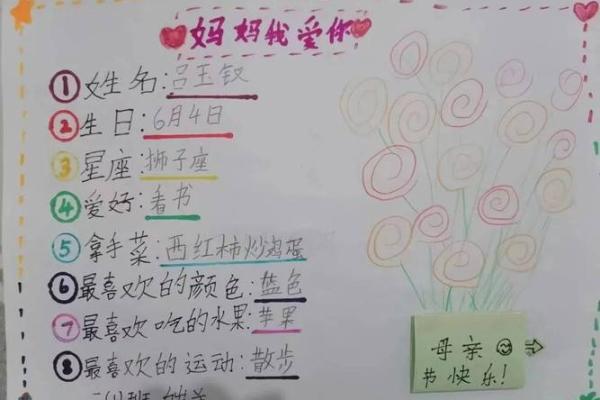 妈妈我爱你
① 姓名:吕玉钗
② 生日:6月4日
③ 星座:狮子座
④ 爱好:看书
⑤ 拿手菜:西红柿炒鸡蛋
⑥ 最喜欢的颜色:蓝色
⑦ 最喜欢吃的水果:苹果
⑧ 最喜欢的运动:散步
母亲
节快乐!